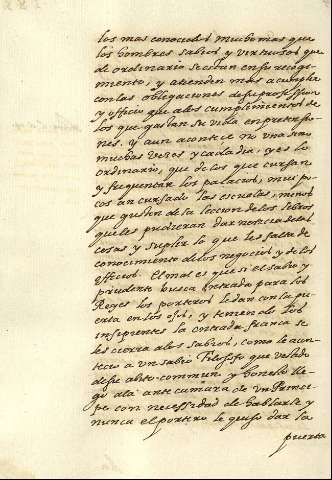 los mas conocidos mucho mas que
los hombres sabios y virtuosos que
de ordinario se estan en su recogi
miento, y atienden mas a cumplir
con las obligaciones de su profession
y officio que a los cumplimientos de
los que gastan su vida en pretensio
nes. y aun acontece no una sino
muchas veces y cada dia, y es lo
ordinario, que de los que cursan
y frequentan los palacios, muy po
cos an cursado las escuelas, menos
que gusten de la leccion de los libros
que les pudieran dar noticia de las
cosas y suplir lo que les falta de
conocimiento de los negocios y de los
officios. El mal es que si el sabio y
prudente busca entrada para los
Reyes los porteros le dan con la pu
erta en los ojos, y teniendo los
insipientes la entrada franca se
les cierra a los sabios, como le acon
tecio a un sabio Philosopho que vestido
de su abito comun y honesto lle
go a la antecamara de un Princi
pe con necessidad de hablarle y
nunca el portero le quiso dar la
puerta